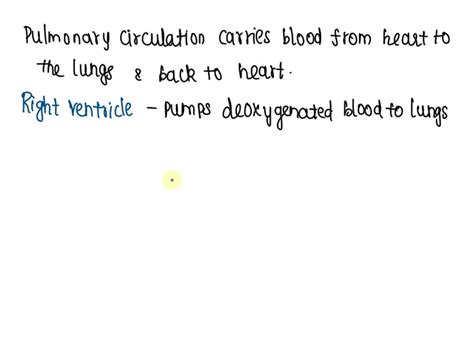 Pulmonary circulation carries blood from heart to
the lungs & back to heart.
Right ventricle - pumps deoxygenated blood to lungs